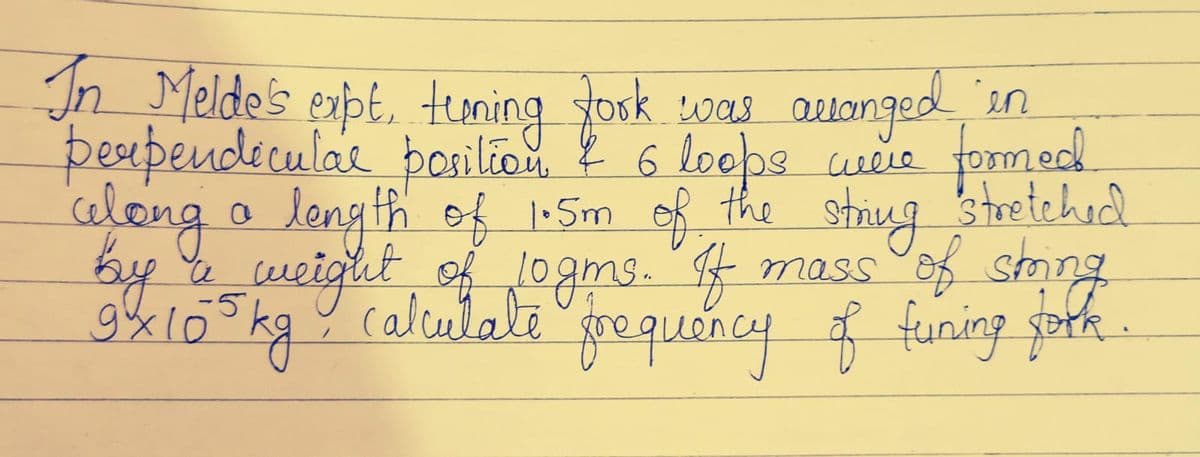 In Melde's expt, tuning fork was arranged in
perpendicular position & 6 loops were formed
along a length of 1.5m of the string stretched
by a weight of 10gms. If mass of string
9x10⁻⁵ kg, calculate frequency of tuning fork.